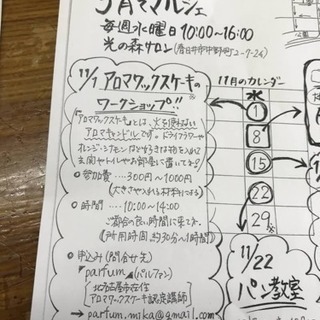 5月マルシェ
毎週水曜日10:00~16:00
光の森サロン
11/1 アロマワックスケーキの
ワークショップ!!
アロマワックスケーキとは、火を使わない
アロマキャンドルです。ドライフラワーや
オレンジ・シナモンなど好きな物を入れて
玄関やトイレやお部屋に置いてネ!
◎参加費……300円~1000円
(大きさや入れる材料による)
◎時間……10:00~14:00
ご都合の良い時間に来てネ
(所用時間 約30分~1時間)
◎申込み(問合せ先)
"parfum"(パルファン)
北名古屋市在住
アロマワックスケーキ認定講師
→parfum.mika@gmail.com
11月のカレンダー
水
1
8
15
22
29
11/22
パン教室